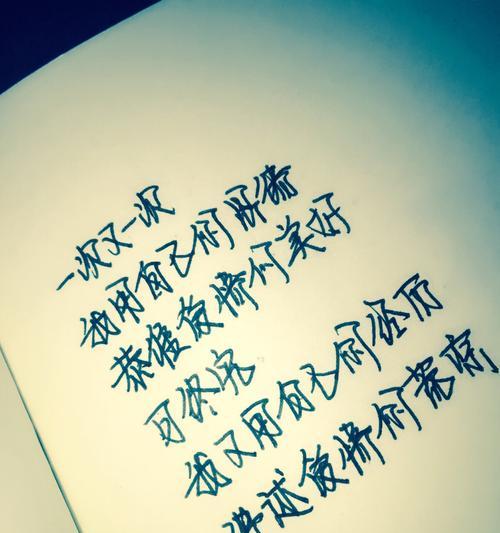 一次又一次
我用自己的所
恭维爱情的美好
可终究
我又用自己的经历
讲述爱情的荒